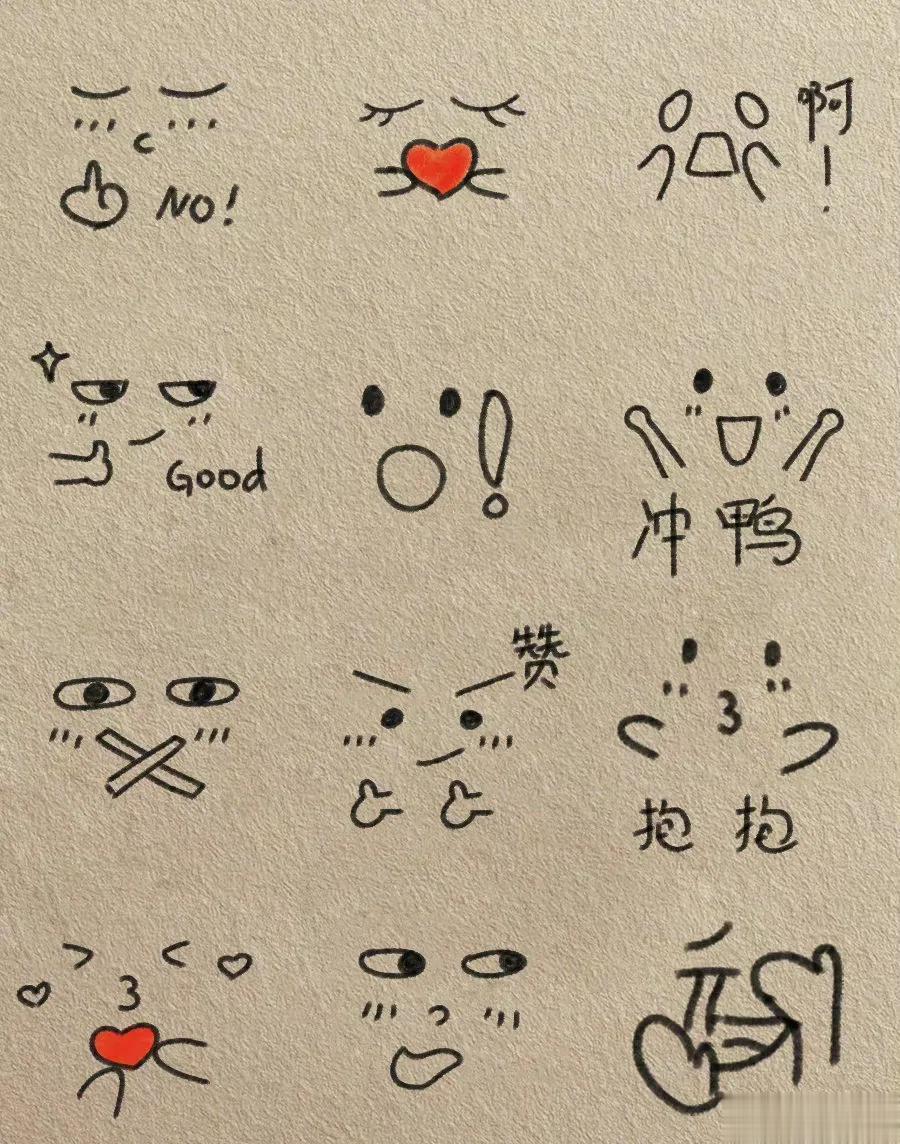 NO!
啊!
Good
冲鸭
赞
抱抱